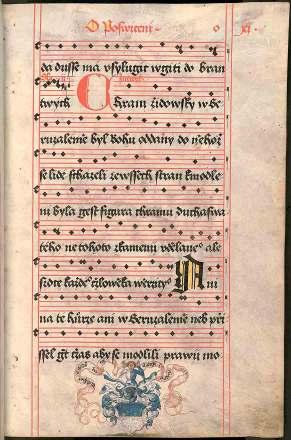 O Poswiceni
xi
da dusse ma vsylugic wgiti do bran
twych Chram zidowsky w be
ruzaleme byl Bohu oddany do nehoz
se lide schazeli zewssech stran kmodle
ni byla gest figura chramu Ducha swa
teho ne tohoto zkameni vdelane ale
sidte kazde czloweka wernyo Ani
na te huorze ani w Geruzaleme neb pri
ssel gt czas aby se modlili prawii mo